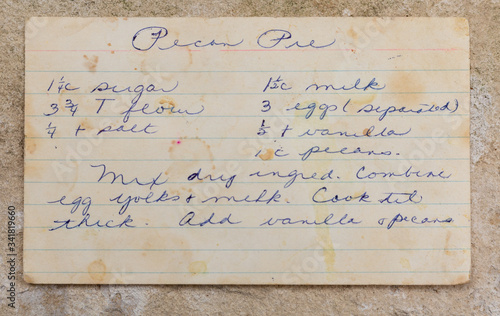 Pecan Pie
1 1/4 c sugar 1 1/2 c milk
3 3/4 T flour 3 eggs (separated)
1/4 t salt 1/2 t vanilla
1 c pecans.
Mix dry ingred. Combine
egg yolks & milk. Cook til
thick. Add vanilla & pecans
Adobe Stock | #341819660